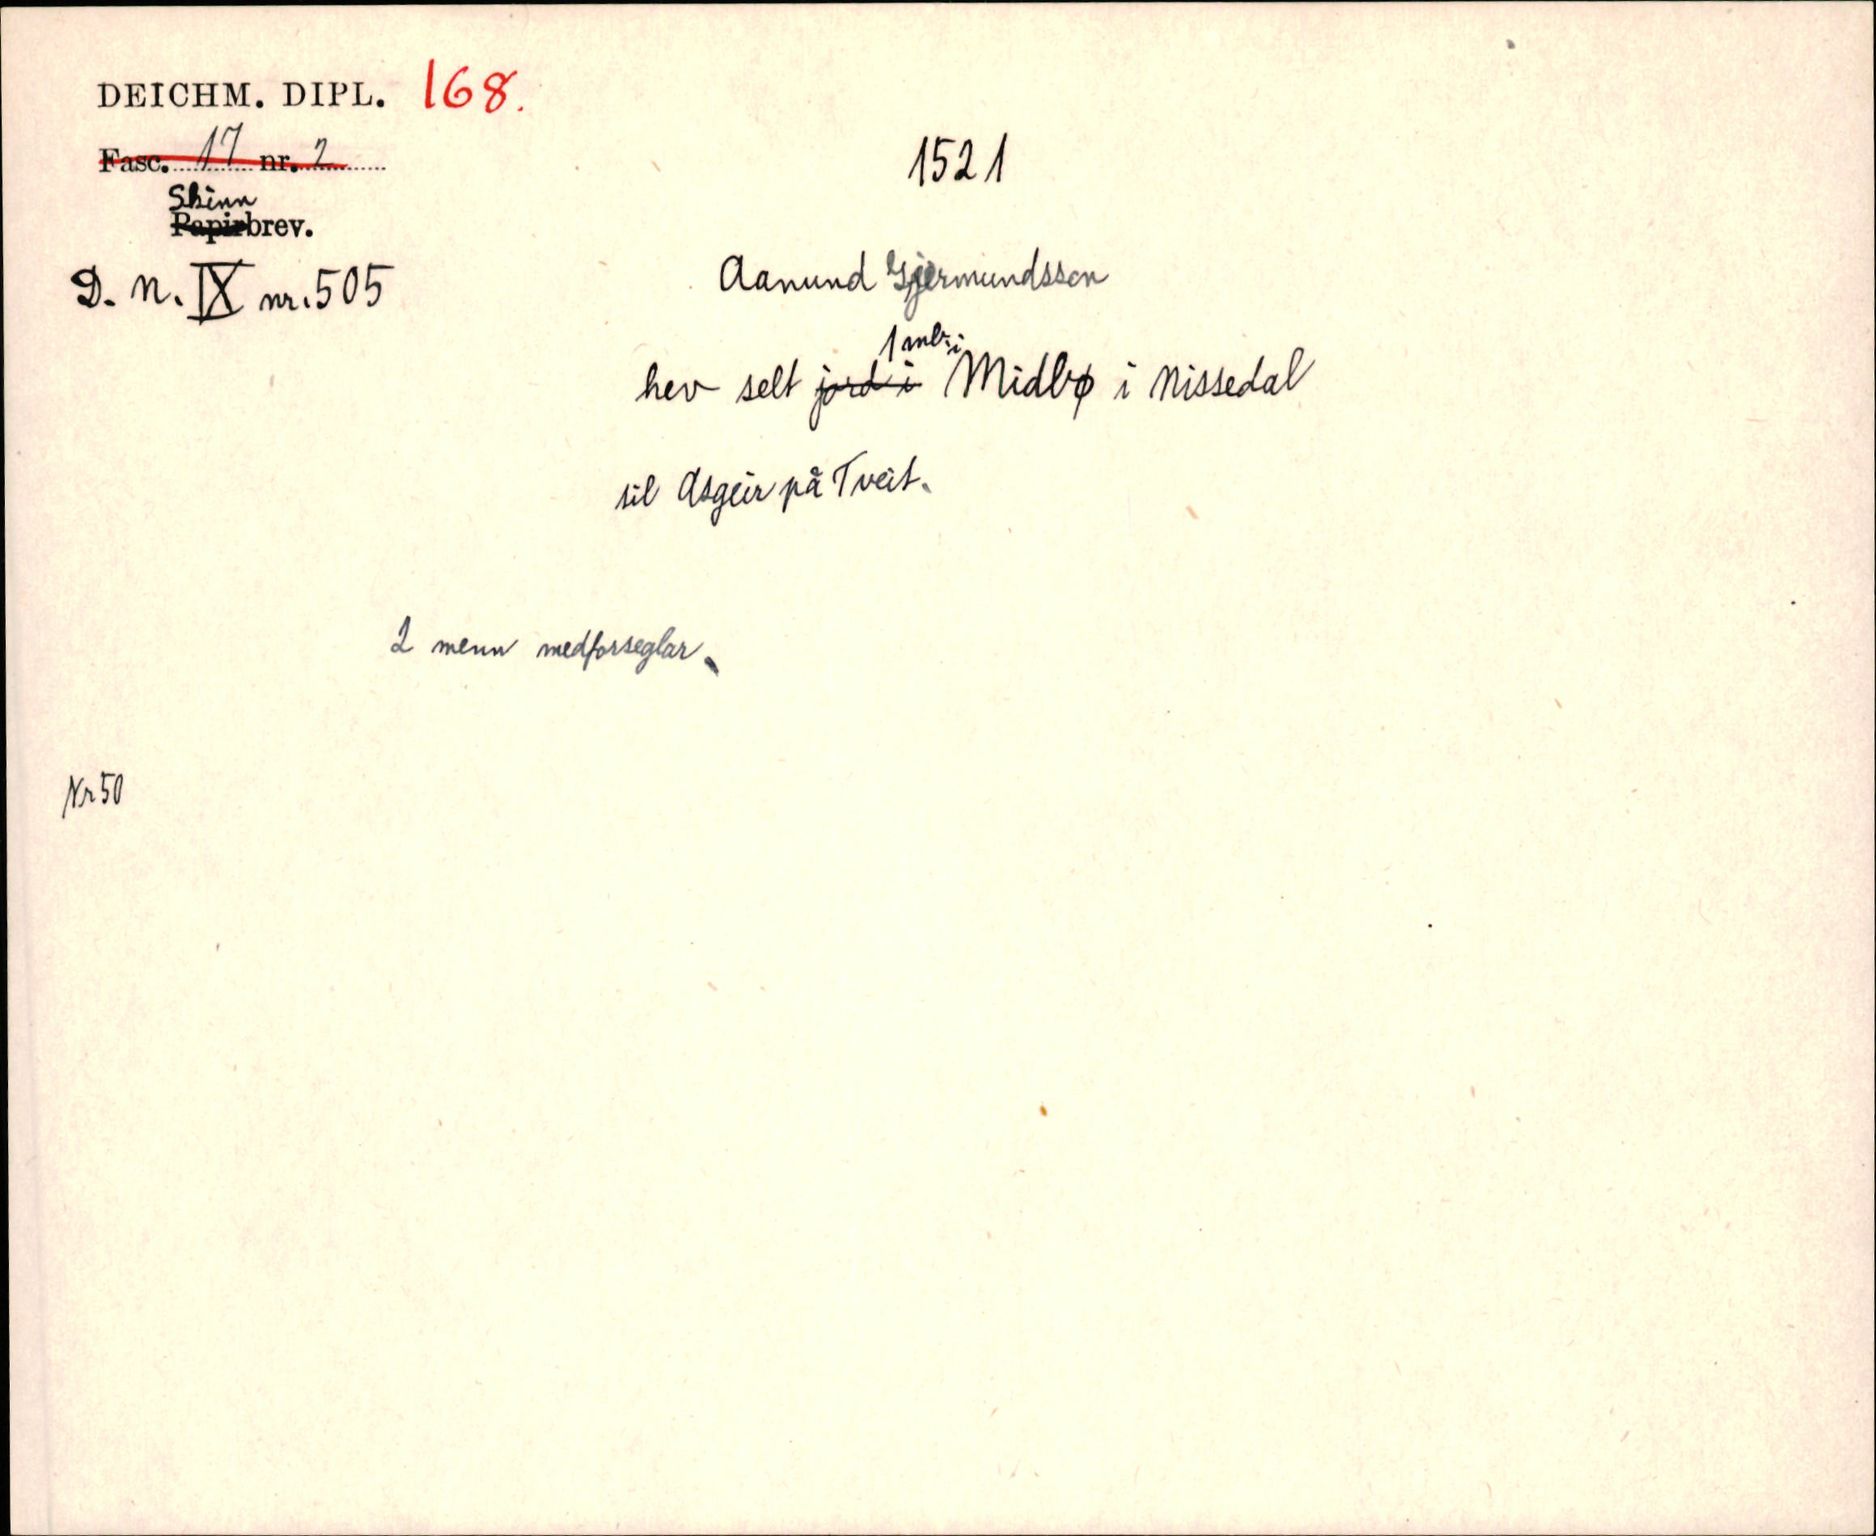 DEICHM. DIPL. 168.
Fasc. 17 nr. 2
Skinn
Papirbrev.
D. N. IX nr. 505
1521
Aanund Gjermundsson
1 mb. i
hev selt jord i Midbø i Nissedal
til Asgeir på Tveit.
2 menn medforseglar.
Nr 50